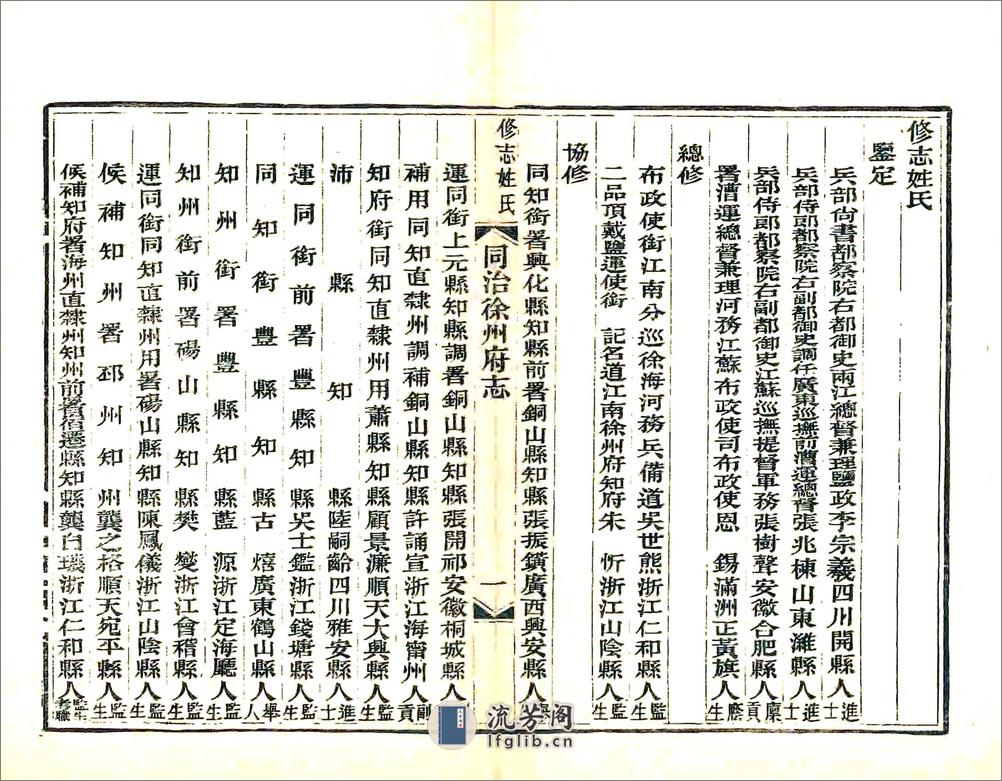 修志姓氏
鑒定
兵部尚書都察院右都御史兩江總督兼理鹽政李宗羲四川開縣人進士
兵部侍郎都察院右副都御史調任廣東巡撫前漕運總督張兆棟山東濰縣人進士
兵部侍郎都察院右副都御史江蘇巡撫提督軍務張樹聲安徽合肥縣人廩貢
署漕運總督兼理河務江蘇布政使司布政使恩錫滿洲正黃旗人廕生
總修
布政使銜江南分巡徐海河務兵備道吳世熊浙江仁和縣人監生
二品頂戴鹽運使銜記名道江南徐州府知府朱忻浙江山陰縣人監生
協修
同知銜署興化縣知縣前署銅山縣知縣張振鐄廣西興安縣人
修志姓氏
同治徐州府志
一
運同銜上元縣知縣調署銅山縣知縣張開祁安徽桐城縣人
補用同知直隸州調補銅山縣知縣許誦宣浙江海甯州人副貢
知府銜同知直隸州用蕭縣知縣顧景濂順天大興縣人監生
沛縣知縣陸嗣齡四川雅安縣人進士
運同銜前署豐縣知縣吳士鑑浙江錢塘縣人監生
同知銜豐縣知縣古熺廣東鶴山縣人舉人
知州銜署豐縣知縣藍源浙江定海廳人監生
知州銜前署碭山縣知縣樊燮浙江會稽縣人監生
運同銜同知直隸州用署碭山縣知縣陳鳳儀浙江山陰縣人監生
候補知州署邳州知州龔之格順天宛平縣人監生
候補知府署海州直隸州知州前署宿遷縣知縣龔自璣浙江仁和縣人監生考職
流芳阁
lfglib.cn